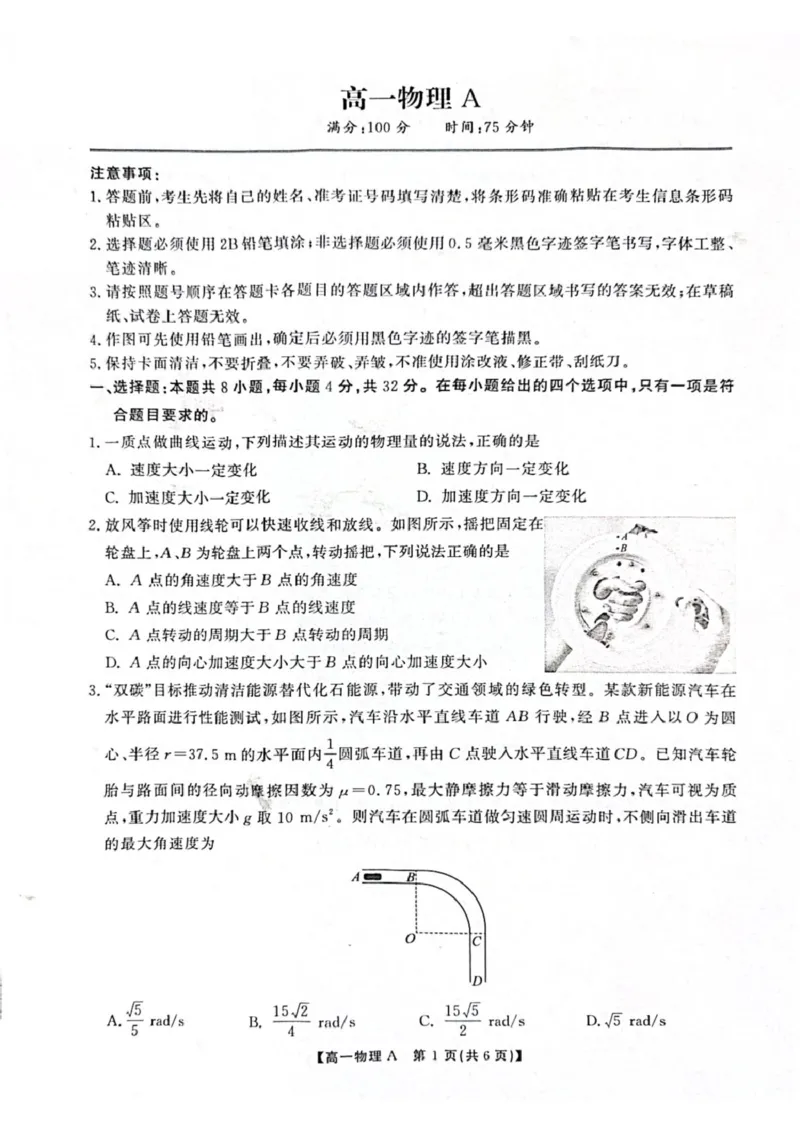 高一物理 A
满分:100 分 时间:75 分钟
注意事项:
1. 答题前,考生先将自己的姓名、准考证号码填写清楚,将条形码准确粘贴在考生信息条形码
粘贴区。
2. 选择题必须使用 2B 铅笔填涂;非选择题必须使用 0.5 毫米黑色字迹签字笔书写,字体工整、
笔迹清晰。
3. 请按照题号顺序在答题卡各题目的答题区域内作答,超出答题区域书写的答案无效;在草稿
纸、试卷上答题无效。
4. 作图可先使用铅笔画出,确定后必须用黑色字迹的签字笔描黑。
5. 保持卡面清洁,不要折叠,不要弄破、弄皱,不准使用涂改液、修正带、刮纸刀。
一、选择题:本题共 8 小题,每小题 4 分,共 32 分。在每小题给出的四个选项中,只有一项是符
合题目要求的。
1. 一质点做曲线运动,下列描述其运动的物理量的说法,正确的是
A. 速度大小一定变化 B. 速度方向一定变化
C. 加速度大小一定变化 D. 加速度方向一定变化
2. 放风筝时使用线轮可以快速收线和放线。如图所示,摇把固定在
轮盘上,A、B 为轮盘上两个点,转动摇把,下列说法正确的是
A
B
A. A 点的角速度大于 B 点的角速度
B. A 点的线速度等于 B 点的线速度
C. A 点转动的周期大于 B 点转动的周期
D. A 点的向心加速度大小大于 B 点的向心加速度大小
3. “双碳”目标推动清洁能源替代化石能源,带动了交通领域的绿色转型。某款新能源汽车在
水平路面进行性能测试,如图所示,汽车沿水平直线车道 AB 行驶,经 B 点进入以 O 为圆
心、半径 r=37.5 m 的水平面内 1/4 圆弧车道,再由 C 点驶入水平直线车道 CD。已知汽车轮
胎与路面间的径向动摩擦因数为 μ=0.75,最大静摩擦力等于滑动摩擦力,汽车可视为质
点,重力加速度大小 g 取 10 m/s²。则汽车在圆弧车道做匀速圆周运动时,不侧向滑出车道
的最大角速度为
A B
O C
D
A. √5/5 rad/s B. 15√2/4 rad/s C. 15√5/2 rad/s D. √5 rad/s
【高一物理 A 第 1 页(共 6 页)】